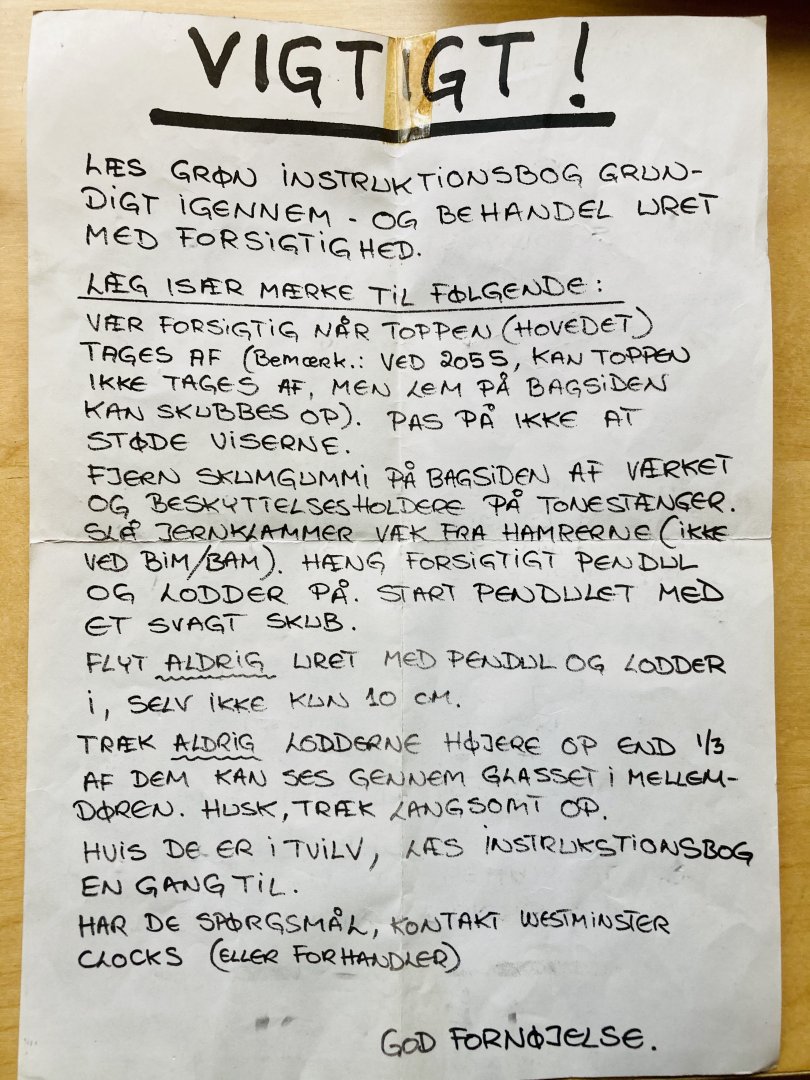 VIGTIGT!
LÆS GRØN INSTRUKTIONSBOG GRUN-
DIGT IGENNEM - OG BEHANDEL URET
MED FORSIGTIGHED.
LÆG ISÆR MÆRKE TIL FØLGENDE:
VÆR FORSIGTIG NÅR TOPPEN (HOVEDET)
TAGES AF (Bemærk.: VED 2055, KAN TOPPEN
IKKE TAGES AF, MEN LEM PÅ BAGSIDEN
KAN SKUBBES OP). PAS PÅ IKKE AT
STØDE VISERNE.
FJERN SKUMGUMMI PÅ BAGSIDEN AF VÆRKET
OG BESKYTTELSESHOLDERE PÅ TONESTÆNGER.
SLÅ JERNKLAMMER VÆK FRA HAMRERNE (IKKE
VED BIM/BAM). HÆNG FORSIGTIGT PENDUL
OG LODDER PÅ. START PENDULET MED
ET SVAGT SKUB.
FLYT ALDRIG URET MED PENDUL OG LODDER
I, SELV IKKE KUN 10 CM.
TRÆK ALDRIG LODDERNE HØJERE OP END 1/3
AF DEM KAN SES GENNEM GLASSET I MELLEM-
DØREN. HUSK, TRÆK LANGSOMT OP.
HVIS DE ER I TVILV, LÆS INSTRUKSTIONSBOG
EN GANG TIL.
HAR DE SPØRGSMÅL, KONTAKT WESTMINSTER
CLOCKS (ELLER FORHANDLER)
GOD FORNØJELSE.